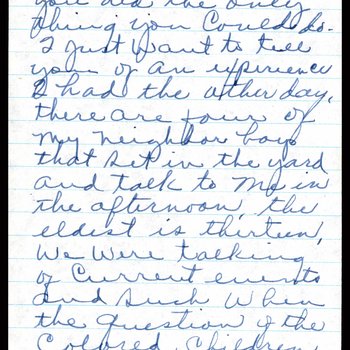 you did the only
thing you could do.
I just want to tell
you of an experience
I had the other day,
there are four of
my neighbor boys
that set in the yard
and talk to me in
the afternoon, the
eldest is thirteen,
We were talking
of current events
and such when
the question of the
Colored Children